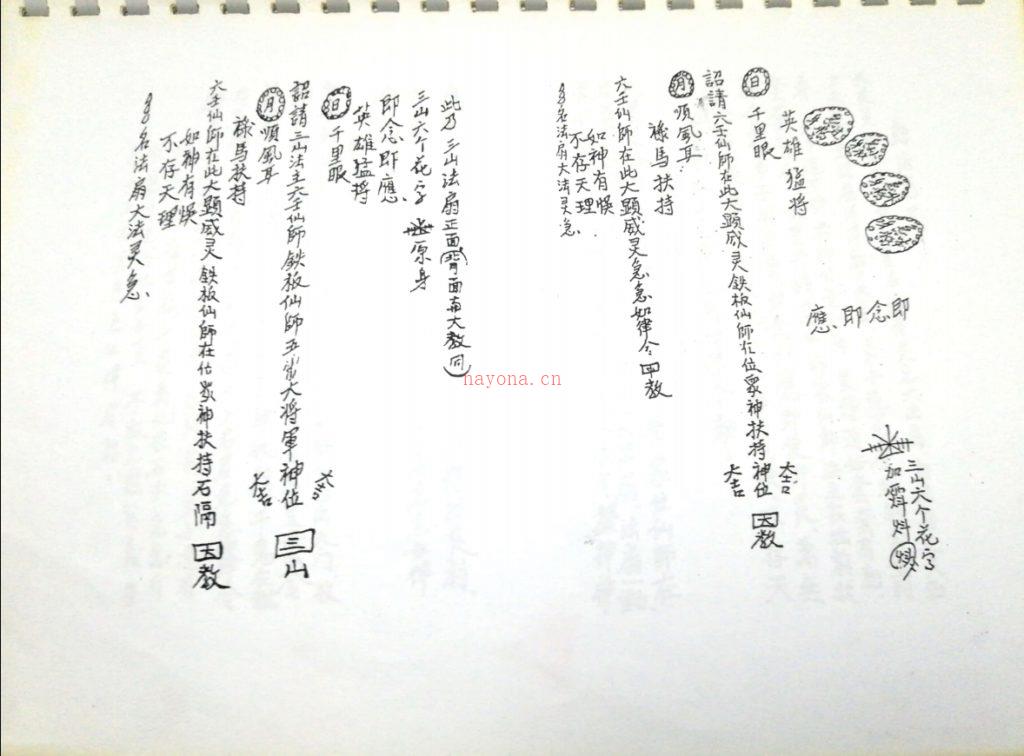 即念即應
三山六个花字
加霛炓
日
英雄猛将
千里眼
大吉
詔請六壬仙師在此大顕威灵鉄板仙師在位衆神扶持神位
大吉
天教
月
順風耳
祿馬扶持
六壬仙師在此大顕威灵急急如律令
教
如神有悞
不存天理
名法扇大法灵急
此乃三山法扇正面(背面南大教同)
三山六个花字
原身
即念即應
英雄猛将
日
千里眼
大吉
詔請三山法主六壬仙師鉄板仙師五雷大将軍神位
大吉
三山
月
順風耳
祿馬扶持
六壬仙師在此大顕威灵鉄板仙師在位衆神扶持石隔
天教
如神有悞
不存天理
名法扇大法灵急
hayona.cn